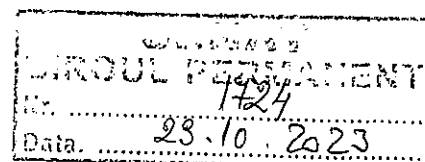 BIROUL PERMANENT
Nr. 1724
Data. 23.10.2023